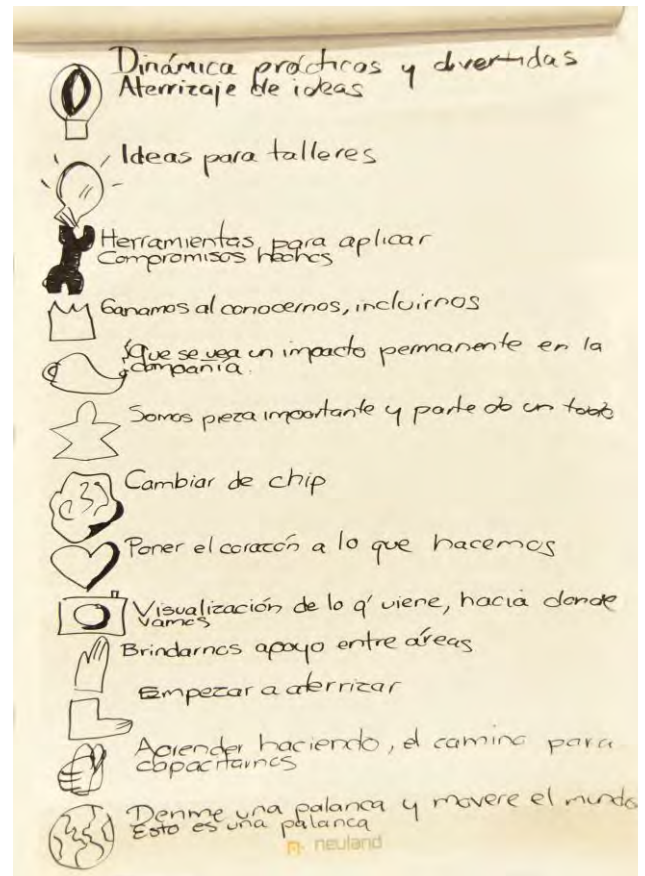 Dinámica prácticas y divertidas
Aterrizaje de ideas
Ideas para talleres
Herramientas para aplicar
Compromisos hechos
Ganamos al conocernos, incluirnos
Que se vea un impacto permanente en la
compañía.
Somos pieza importante y parte de un todo
Cambiar de chip
Poner el corazón a lo que hacemos
Visualización de lo q' viene, hacia donde
vamos
Brindarnos apoyo entre áreas
Empezar a aterrizar
Aprender haciendo, el camino para
capacitarnos
Denme una palanca y movere el mundo
Esto es una palanca
neuland